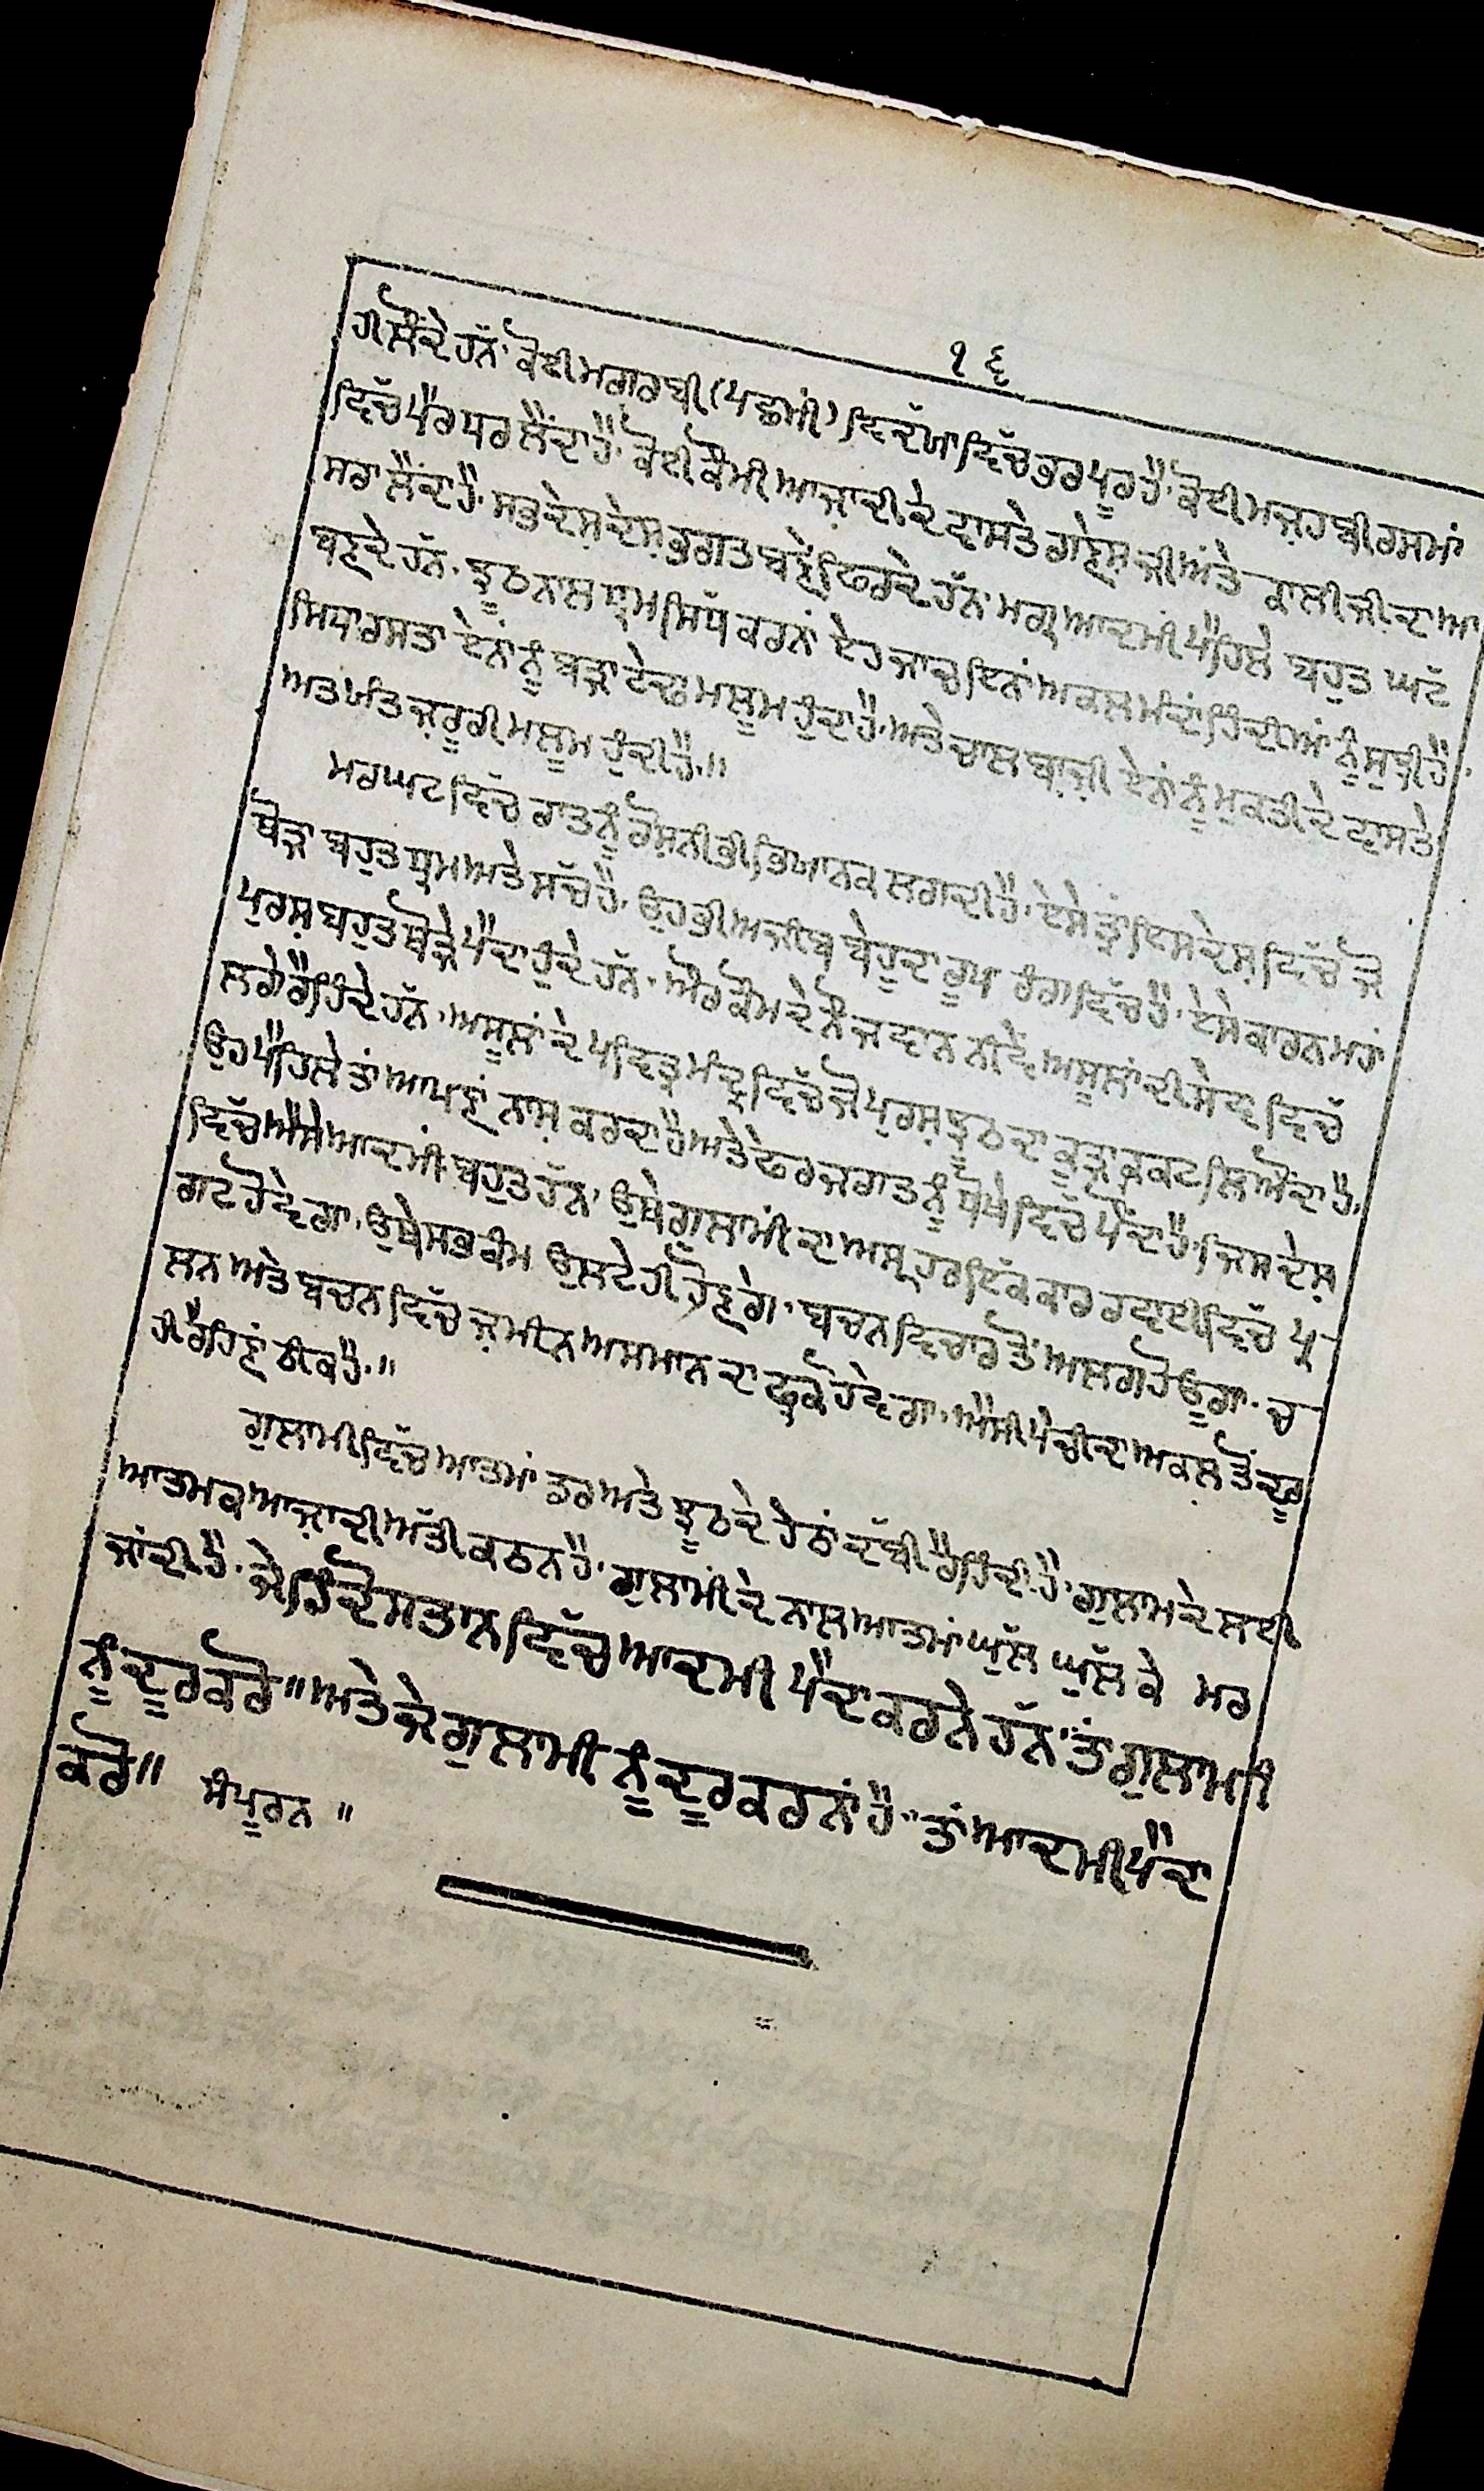 ੧੬
ਹੀ ਲੈਂਦੇ ਹਨ· ਕੋਈ ਮਗਰਬੀ (ਪਛਮੀਂ) ਵਿਦੱਯਾ ਵਿੱਚ ਭਰਪੂਰ ਹੈ· ਕੋਈ ਮਜ਼ਹਬੀ ਰਸਮਾਂ
ਵਿੱਚ ਪੈਰ ਧਰ ਲੈਂਦਾ ਹੈ· ਕੋਈ ਕੌਮੀ ਆਜ਼ਾਦੀ ਦੇ ਵਾਸਤੇ ਗਣੇਸ਼ ਜੀ ਅਤੇ ਕਾਲੀ ਜੀ ਦਾ ਆ
ਸਰਾ ਲੈਂਦਾ ਹੈ· ਸਭ ਦੇਸ਼ ਦੇਸ਼ ਭਗਤ ਬਣੇਂ ਫਿਰਦੇ ਹੱਨ ਮਗ੍ਰ ਆਦਮੀ ਪੈਹਿਲੇ ਬਹੁਤ ਘਟੱ
ਬਣਦੇ ਹੱਨ· ਝੂਠ ਨਾਲ ਧ੍ਰਮ ਸਿੱਧ ਕਰਨਾਂ ਏਹ ਜਾਚ ਇਨਾਂ ਅਕਲਮੰਦਾਂ ਹਿੰਦੀਆਂ ਨੂੰ ਸੁਝੀ ਹੈ·
ਸਿਧਾ ਰਸਤਾ ਏਨਾਂ ਨੂੰ ਬੜਾ ਟੇਢਾ ਮਲੂਮ ਹੁੰਦਾ ਹੈ· ਅਤੇ ਚਾਲਬਾਜ਼ੀ ਏਨਾਂ ਨੂੰ ਮੁਕਤੀ ਦੇ ਵਾਸਤੇ
ਅਤਯੰਤ ਜ਼ਰੂਰੀ ਮਲੂਮ ਹੁੰਦੀ ਹੈ·॥
ਮਰਘਟ ਵਿੱਚ ਰਾਤ ਨੂੰ ਰੋਸ਼ਨੀ ਭੀ ਭਿਯਾਨਕ ਲਗਦੀ ਹੈ· ਏਸੇ ਤ੍ਰਾਂ ਇਸ ਦੇਸ਼ ਵਿੱਚ ਜੋ
ਥੋੜਾ ਬਹੁਤ ਧ੍ਰਮ ਅਤੇ ਸੱਚ ਹੈ· ਓੁਹ ਭੀ ਅਜੀਬ ਬੇਹੂਦਾ ਰੂਪ ਰੰਗ ਵਿੱਚ ਹੈ· ਏਸੇ ਕਾਰਨ ਮਹਾਂ
ਪੁਰਸ਼ ਬਹੁਤ ਥੋੜੇ ਪੈਦਾ ਹੁੰਦੇ ਹੱਨ· ਔਰ ਕੌਮ ਦੇ ਨੌਜਵਾਨ ਨੀਵੇਂ ਅਸੂਲਾਂ ਦੀ ਸੇਵਾ ਵਿਚੱ
ਲਗੇ ਰੈਹਿੰਦੇ ਹੱਨ· ਅਸੂਲਾਂ ਦੇ ਪਵਿਤ੍ਰ ਮੰਦ੍ਰ ਵਿੱਚ ਜੋ ਪੁਰਸ਼ ਝੂਠ ਦਾ ਕੂੜਾ ਕ੍ਰਕਟ ਲਿਔਂਦਾ ਹੈ·
ਓੁਹ ਪੈਹਿਲੇ ਤਾਂ ਆਪਣਾਂ ਨਾਸ਼ ਕਰਦਾ ਹੈ ਅਤੇ ਫੇਰ ਜਗਤ ਨੂੰ ਧੋਖੇ ਵਿੱਚ ਪੌਂਦਾ ਹੈ· ਜਿਸ ਦੇਸ਼
ਵਿੱਚ ਐਸੇ ਆਦਮੀਂ ਬਹੁਤ ਹੱਨ· ਓੁਥੇ ਗੁਲਾਮੀਂ ਦਾ ਅਸ੍ਰ ਹਰ ਇੱਕ ਕਾਰਰਵਾਈ ਵਿੱਚ ਪ੍ਰ
ਗਟ ਹੋਵੇਗਾ· ਓੁਥੇ ਸਭ ਕੰਮ ਓੁਲਟੇ ਹੀ ਹੋਣਗੇ· ਬਚਨ ਵਿਚਾਰ ਤੋਂ ਅਲਗ ਹੋਊਗਾ· ਚ
ਲਨ ਅਤੇ ਬਚਨ ਵਿੱਚ ਜ਼ਮੀਨ ਅਸਮਾਨ ਦਾ ਫ੍ਰਕ ਹੋਵੇਗਾ· ਐਸੀ ਪੇਚੀਦਾ ਅਕਲ ਤੋਂ ਦੂਰ
ਹੀ ਰੈਹਿਣਾਂ ਠੀਕ ਹੈ·॥
ਗੁਲਾਮੀ ਵਿੱਚ ਆਤਮਾਂ ਡਰ ਅਤੇ ਝੂਠ ਦੇ ਹੇਠਾਂ ਦੱਬੀ ਰੈਹਿੰਦੀ ਹੈ· ਗੁਲਾਮ ਦੇ ਲਈ
ਆਤਮਕ ਆਜ਼ਾਦੀ ਅੱਤੀ ਕਠਨ ਹੈ· ਗੁਲਾਮੀਂ ਦੇ ਨਾਲ ਆਤਮਾਂ ਘੁੱਲ ਘੁੱਲ ਕੇ ਮਰ
ਜਾਂਦੀ ਹੈ· ਜੇ ਹਿੰਦੋਸਤਾਨ ਵਿੱਚ ਆਦਮੀ ਪੈਦਾ ਕਰਨੇ ਹੱਨ· ਤਾਂ ਗੁਲਾਮੀ
ਨੂੰ ਦੂਰ ਕਰੋ॥ ਅਤੇ ਜੇ ਗੁਲਾਮੀ ਨੂੰ ਦੂਰ ਕਰਨਾਂ ਹੈ· ਤਾਂ ਆਦਮੀ ਪੈਦਾ
ਕਰੋ॥ ਸੰਪੂਰਨ ॥